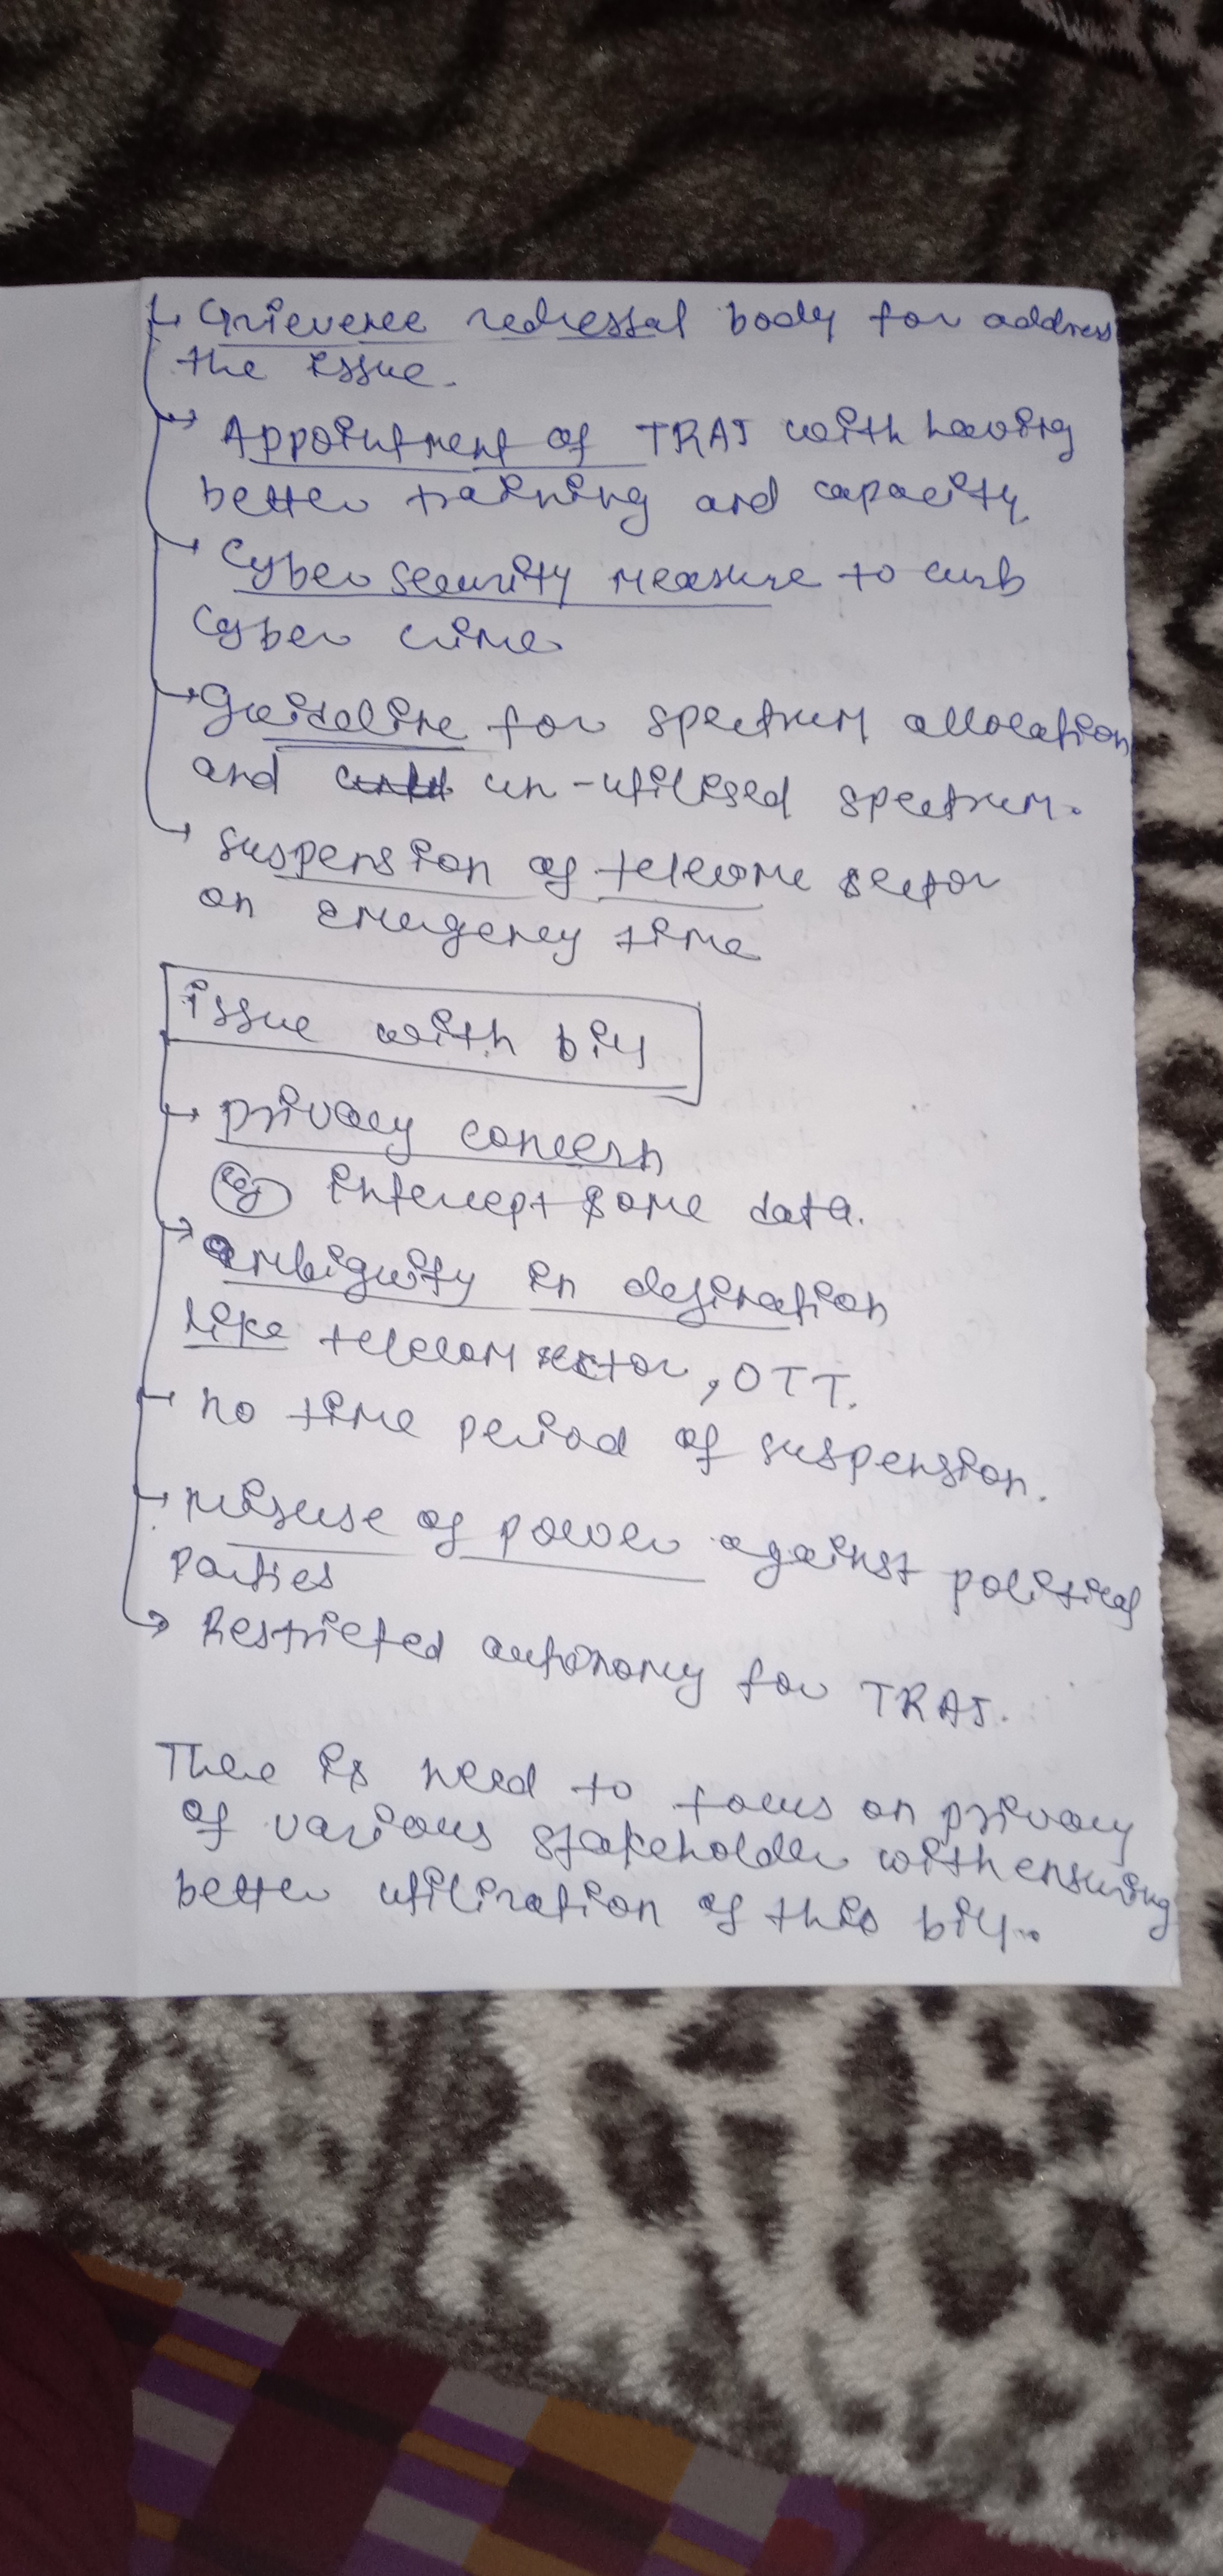 Grievence redressal body for address
the issue.
Appointment of TRAI with having
better training and capacity
Cyber security measure to curb
Cyber crime
Guideline for spectrum allocation
and un-utilised spectrum.
suspension of telecome sector
on emergency time
issue with bill
privacy concern
eg intercept some data.
ambiguity in defination
like telecom sector, OTT.
no time period of suspension.
misuse of power against political
parties
Restricted autonomy for TRAI.
There is need to focus on privacy
of various stakeholder with ensuring
better utilization of this bill..